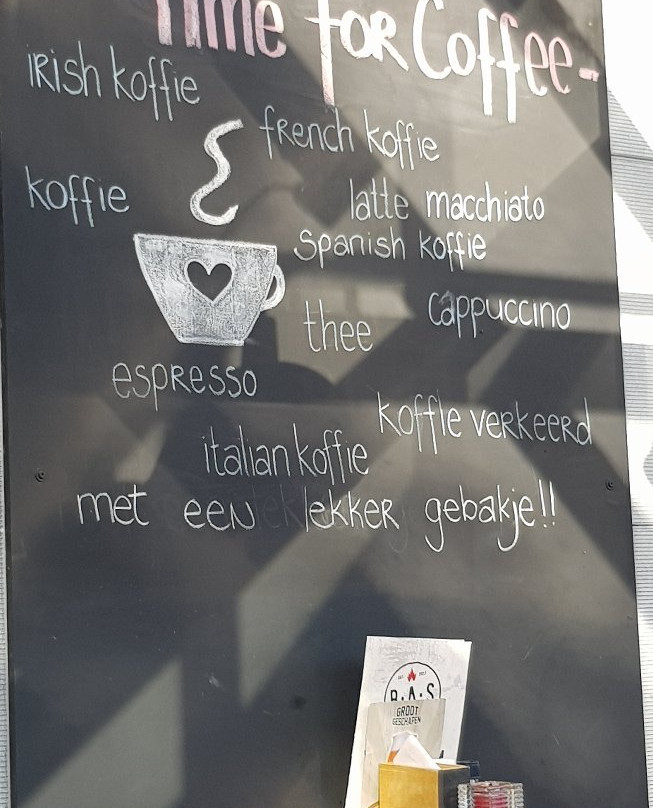 Time for Coffee-
IRish koffie
french koffie
koffie
latte macchiato
Spanish koffie
cappuccino
thee
espresso
koffie verkeerd
italian koffie
met een lekker gebakje!!
B.A.S
GROOT
GESCHAPEN